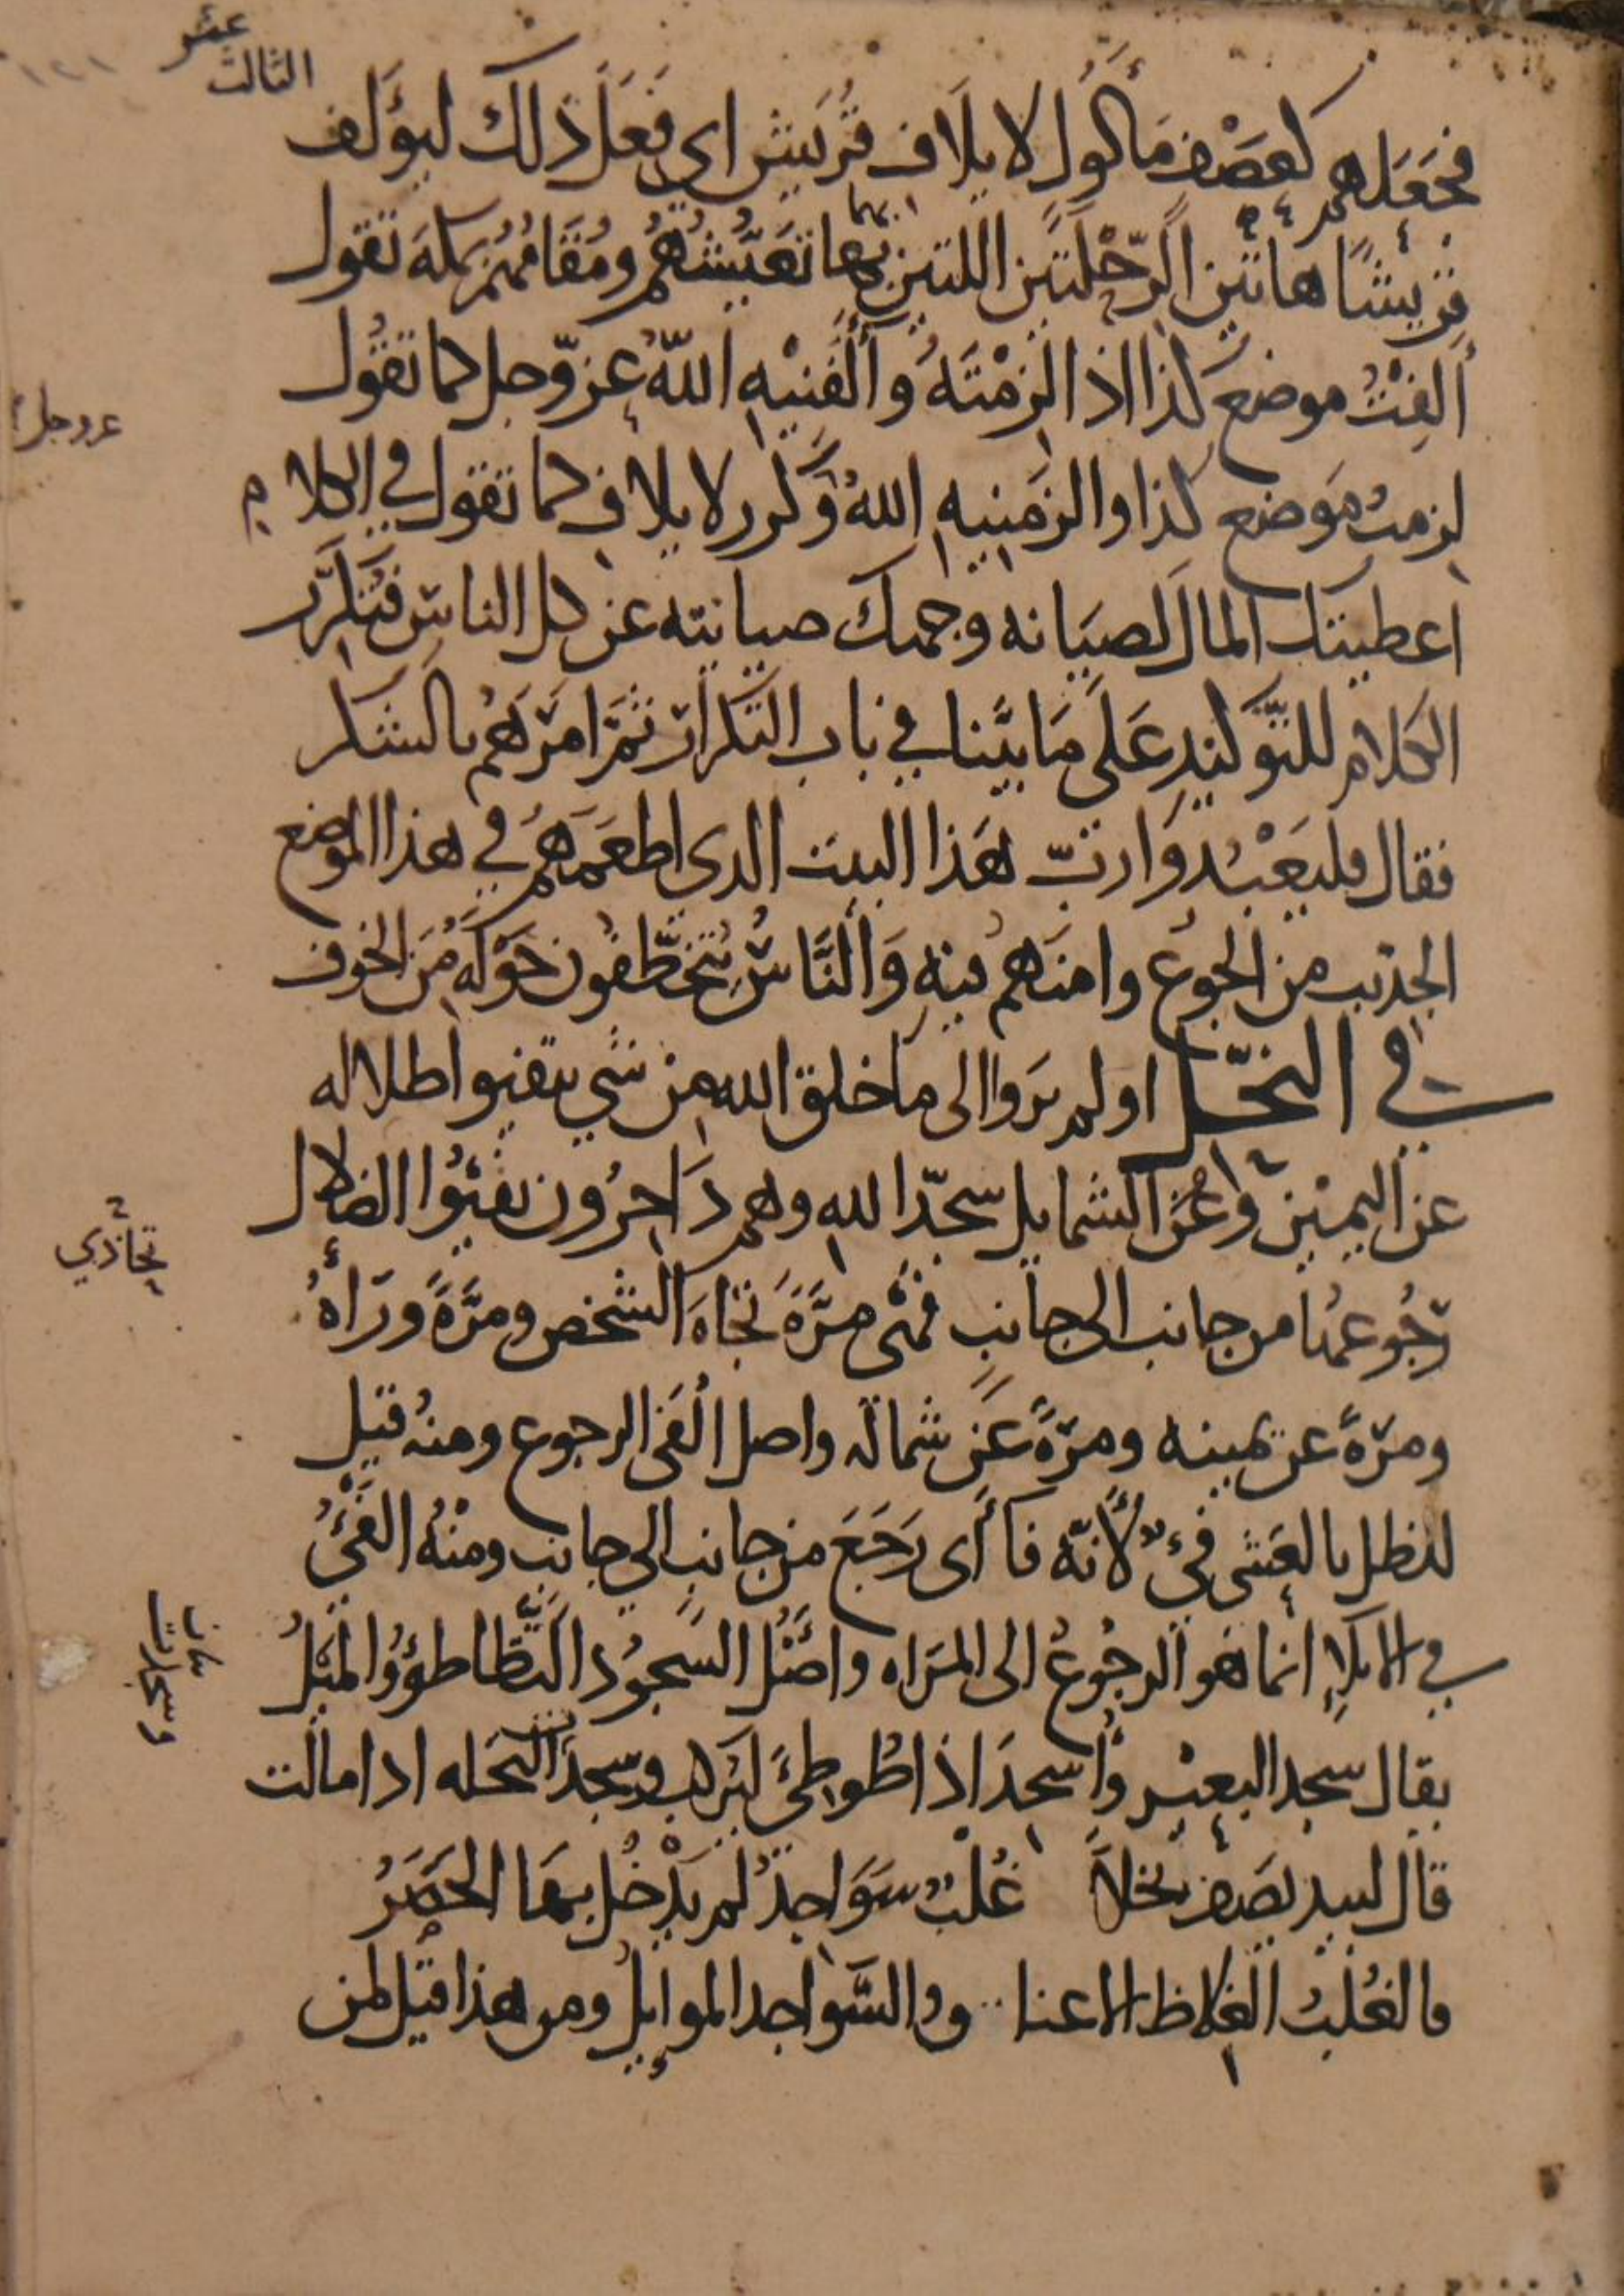 عشر
الثالث
١٢١
فجعلهم كعصف مأكول لايلاف قُريش اي فعَلَ ذلك ليؤلف
قريشًا هاتين الرّحْلَتين اللتين بهما تعيّشهُم ومُقامُهُم بمكة تقول
ألِفْتُ موضع كذا اذا لزمْتَهُ وألفَنيْهِ اللهُ عزّوجل كما تقُول
لزمتُ مَوضع كذا والزمَنيهِ اللهُ وكرر لايلاف كما تقول في الكلام
اعطيتك المال لصيَانة وجهك صيانته عن كل الناس فتكرّر
الكلام للتّوكيد عَلَى مَا بيَّنا في باب التكرار ثمّ امرَهُم بالشكر
فقال فليَعْبُدوا ربّ هَذا البيت الذي اطعَمهُم في هذا الموضع
الجدب من الجوع وامنَهم فيهِ وَالنَّاسُ يُتخطّفُون حَوْلَهُ مِنَ الخوف
في النحل اولم يَروا الى ما خلق الله من شي يتفيوا ظلاله
عن اليمين وعَنْ الشمايل سجّدا للهِ وهم دَاخِرُون تفَيّؤُا الظلال
رجُوعهَا من جانب الى جانبٍ فهْي مرَّةً تجاهَ الشخص ومرَّةً ورَاءهُ
ومرّةً عن يمينه ومرّةً عَن شماله واصل الفَي الرجوع ومنهُ قيل
للظل بالعَشي فيءٌ لأنّه فاءَ أي رَجَعَ من جانبٍ الي جانب ومنْهُ الفَيْءُ
في الايلاءِ انما هو الرجُوعُ الى المَراه واصْلُ السُّجُود التَّطَاطؤُ والميْلُ
يقال سجد البعيْر وأسجدَ اذا طُوطِئَ ليُركب وسجدَت النخله اذا مالت
قال لبيد يصَف نخلاً غُلْبٌ سَوَاجدُ لم يَدْخُل بهَا الحَصَرُ
فالغُلبُ الغلاظ الاعنا و والسَّواجد الموايلُ ومن هذا قيل لمن
عز وجل
تحاذي